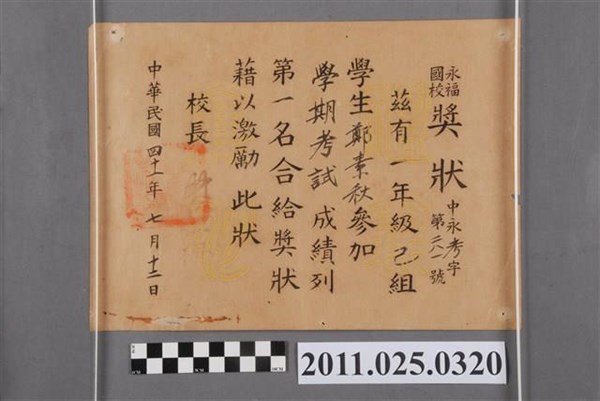 永福
國校
獎狀
中永考字
第二六一號
茲有一年級己組
學生鄭素秋參加
學期考試成績列
第一名合給獎狀
藉以激勵此狀
校長
中華民國四十一年七月十二日
2011.025.0320